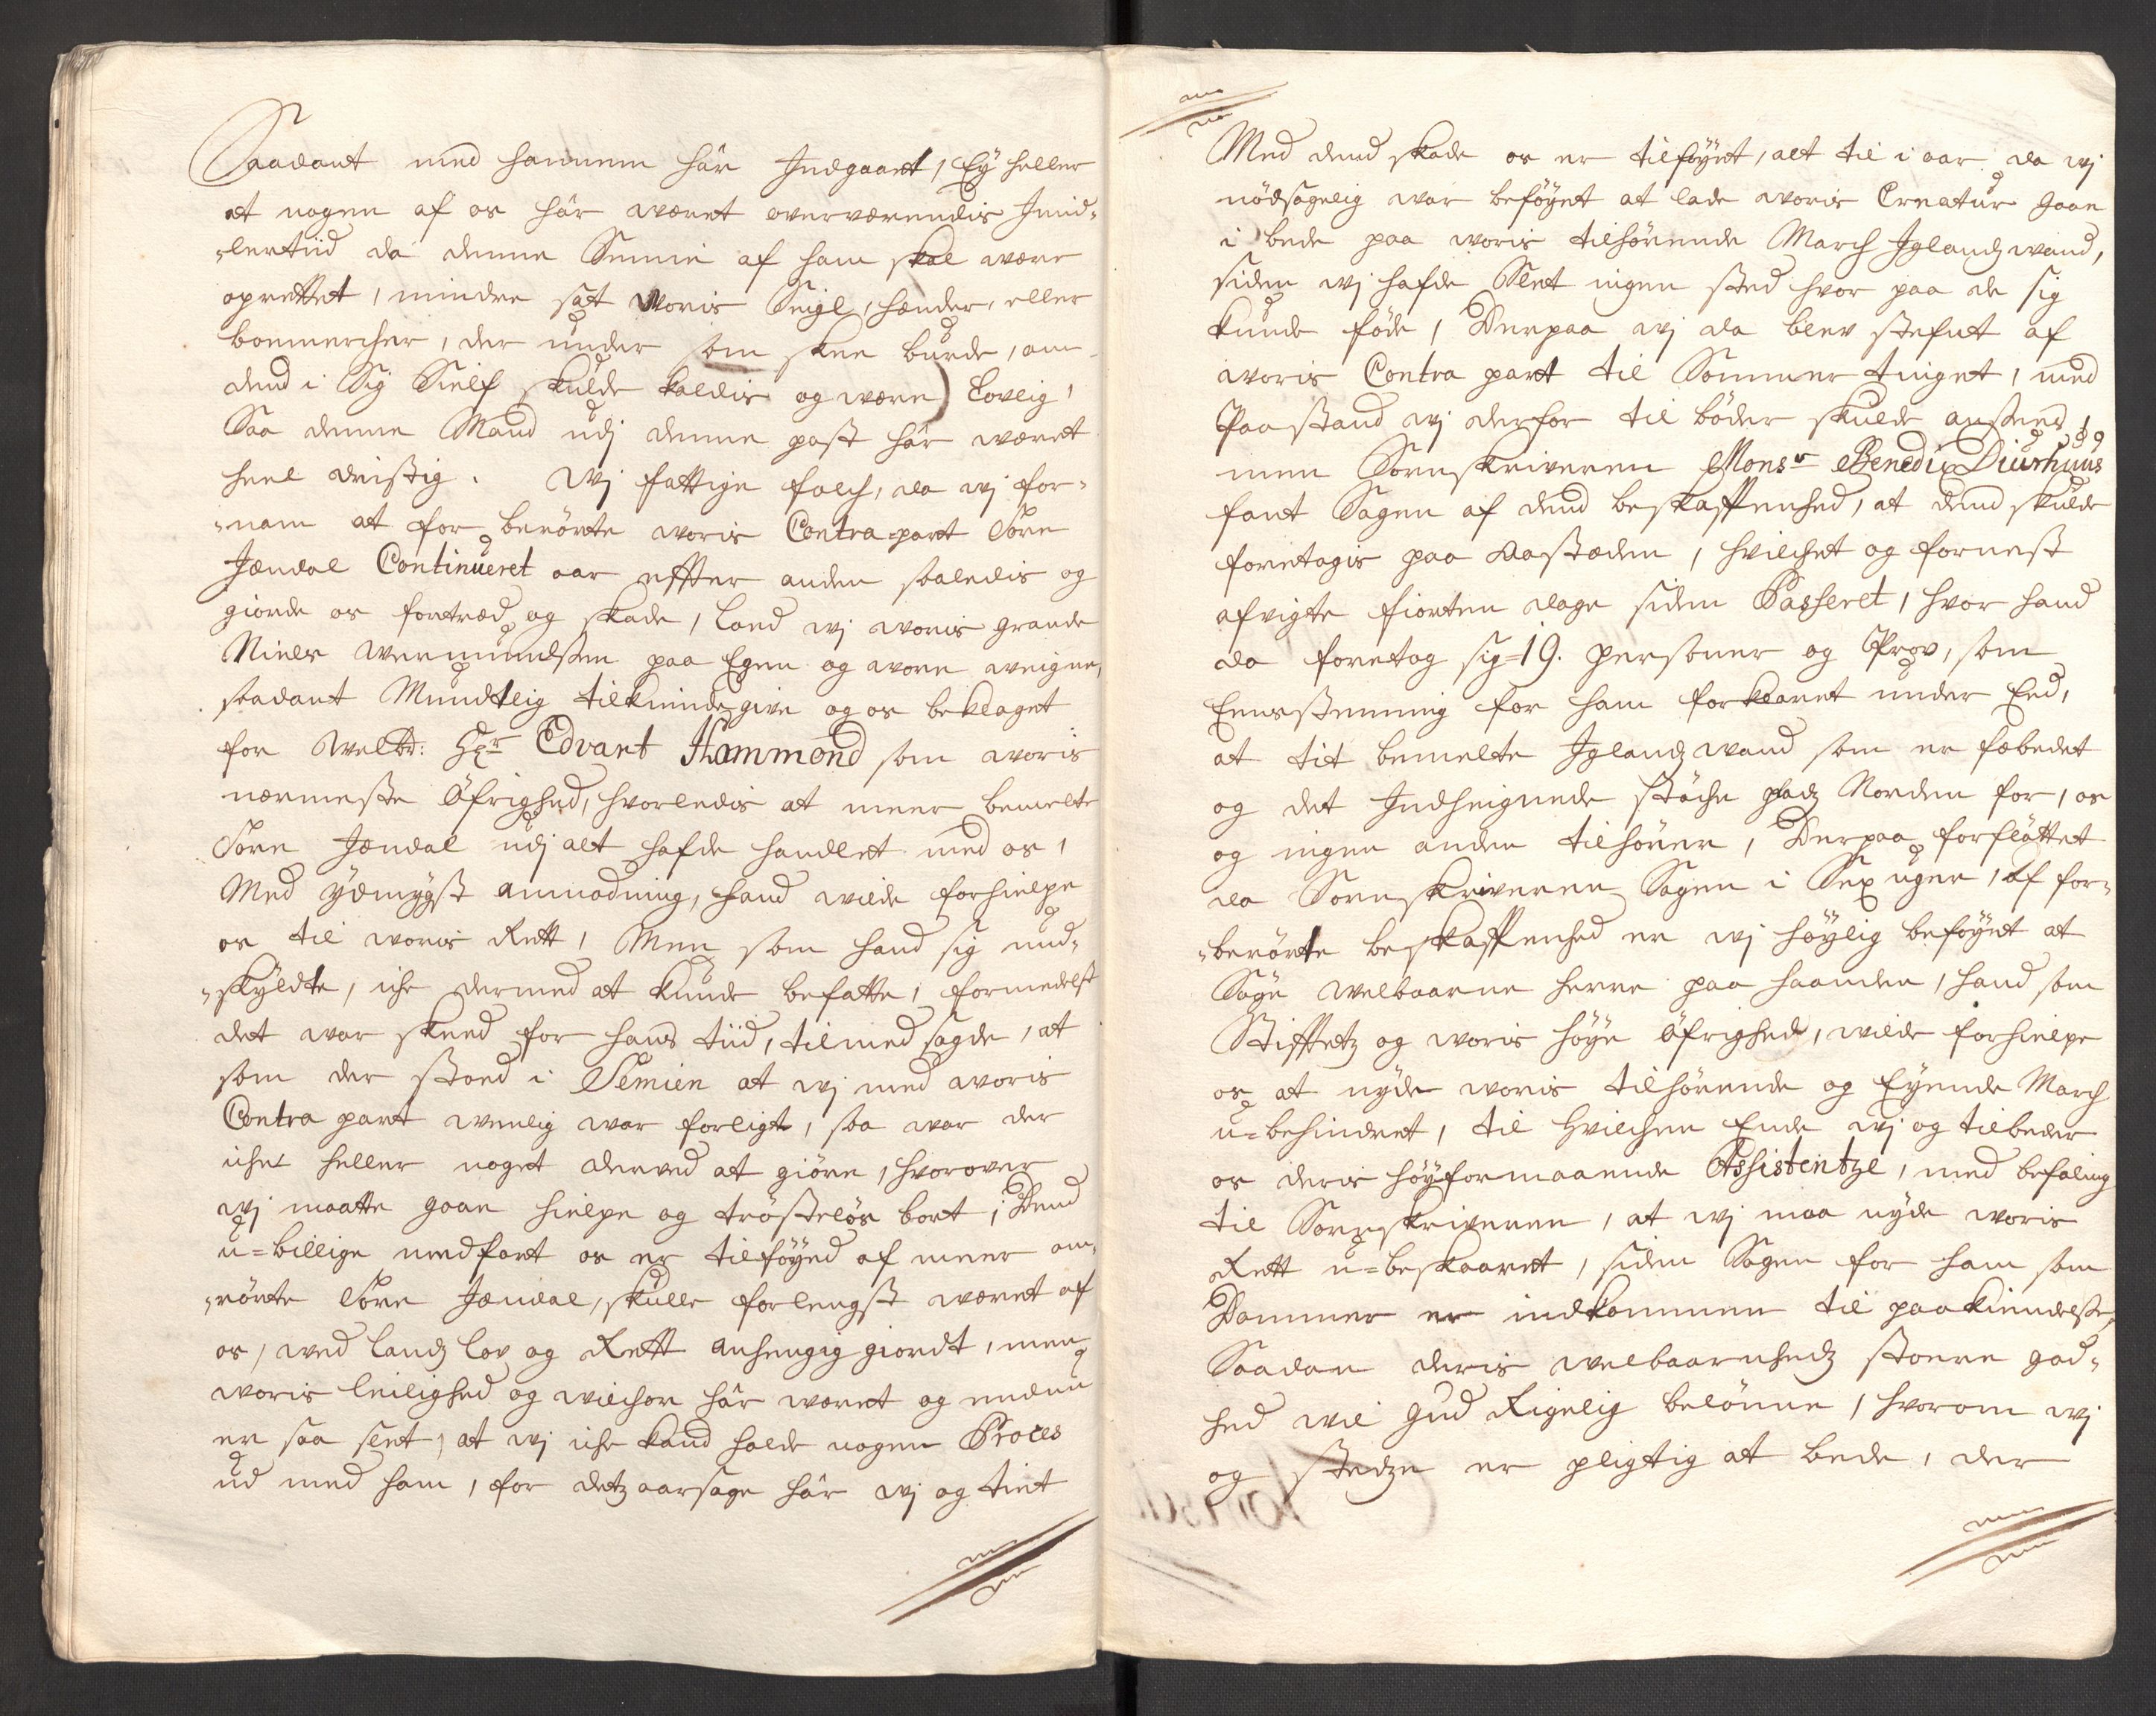 Saadant med hannem hâr Indgaaet, Ey heller
at nogen af os hâr wæret overværendis Imid-
-lertiid da denne Semie af ham skal være
oprettet, mindre sat Woris Seigl, hænder, eller
boemercher, der under som skee burde, om
dend i Sig Sielf skulde kaldis og være Lovlig,
Saa denne Mand udj denne post hâr wæret
heel dristig. Wj fattige folch, da wj for-
-nam at for berörte woris Contra-part Tore
Jændal Continueret aar effter anden saaledis og
giorde os fortræd og skade, Loed wj woris grande
Niels Wermundssen paa Egne og wore weigne,
saadant Mundtlig tilkiende give og os beklaget
for Welbr: Hr. Edvart Hammond som woris
nærmeste Öfrighed, hvorledis at meer bemelte
Tore Jændal udj alt hafde handlet med os,
Med ydmygst anmodning, hand wilde forhielpe
os til woris Rett, Men som hand sig und-
-skyldte, iche dermed at kunde befatte, formedelst
det war skeed for hans tiid, tilmed sagde, at
som der stoed i Semien at wj med woris
Contra part wenlig war forligt, saa war der
iche heller noget derved at giöre, hvorover
wj maatte gaae hielpe og tröstelös bort; Dend
u-billige medfart os er tilföyed af meer om-
-rörte Tore Jændal, skulle forlengst wæret af
os, wed Landz Lov og Rett anhengig giordt, men
woris leilighed og wilchor hâr wæret og endnu
er saa slet, at wj iche kand holde nogen Proces
ud med ham, for detz aarsage hâr wj og tiet
Med dend skade os er tilföyet, alt til i aar da wj
nödsagelig war beföyet at lade woris Creatur gaae
i bede paa woris tilhörende March Iglandz wand,
siden wj hafde Slet ingen sted hvor paa de sig
kunde föde, Derpaa wj da blev stefnt af
woris Contra part til Sommer tinget, med
Paastand wj derfor til böder skulde ansees,
men Sorenskriveren Monsr Benedix Diurhuus
fant Sagen af dend beskaffenhed, at dend skulde
foretagis paa Aastæden, hvilchet og fornest
afvigte fiorten dage siden Passeret, hvor hand
da foretog sig 19. personer og Prov, som
Eensstemmig for ham forklaret under Eed,
at tit bemelte Iglandz wand som er fæbedet
og det Indheignede støche pladz Norden for, os
og ingen anden tilhörer, Derpaa forflöttet
da Sorenskriveren Sagen i Sex uger, af for-
-berörte beskaffenhed er wj höylig beföyet at
Söge welbaarne herre paa haanden, hand som
Stifftetz og woris höye Öfrighed, wilde forhielpe
os at nyde woris tilhörende og Eyende March
u-behindret, til hvilchen Ende wj og tilbeder
os deris höyformaaende Assistentze, med befaling
til Sorenskriveren, at wj maa nyde woris
Rett u-beskaaret, siden Sagen for ham som
Dommer er indkommen til paakiendelse,
Saadan deris welbaarnhedz stoere god-
hed wil Gud Rigelig belönne, hvorom wj
og stedze er pligtig at bede, der